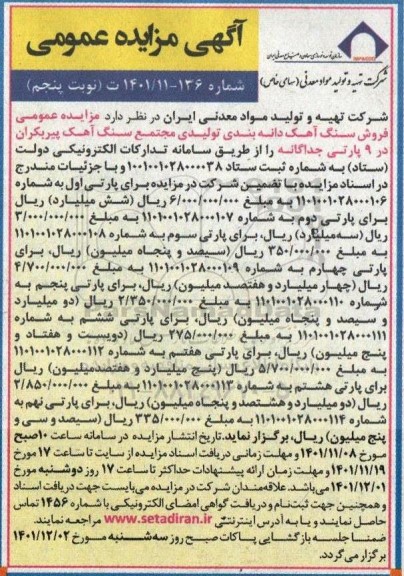 سازمان توسعه و نوسازی معادن و صنایع معدنی ایران
شرکت تهیه و تولید مواد معدنی (سهامی خاص)
آگهی مزایده عمومی
شماره ۱۳۶-۱۴۰۱/۱۱ ت (نوبت پنجم)
شرکت تهیه و تولید مواد معدنی ایران در نظر دارد مزایده عمومی
فروش سنگ آهک دانه بندی تولیدی مجتمع سنگ آهک پیربکران
در ۹ پارتی جداگانه را از طریق سامانه تدارکات الکترونیکی دولت
(ستاد) به شماره ثبت ستاد ۱۱۰۱۰۰۱۰۲۸۰۰۰۰۳۸ و با جزئیات مندرج
در اسناد مزایده با تضمین شرکت در مزایده برای پارتی اول به شماره
۱۱۰۱۰۰۱۰۲۸۰۰۰۱۰۶ به مبلغ ۶/۰۰۰/۰۰۰/۰۰۰ ریال (شش میلیارد) ریال
برای پارتی دوم به شماره ۱۱۰۱۰۰۱۰۲۸۰۰۰۱۰۷ به مبلغ ۳/۰۰۰/۰۰۰/۰۰۰
ریال (سه میلیارد) ریال، برای پارتی سوم به شماره ۱۱۰۱۰۰۱۰۲۸۰۰۰۱۰۸
به مبلغ ۳۵۰/۰۰۰/۰۰۰ ریال (سیصد و پنجاه میلیون) ریال، برای
پارتی چهارم به شماره ۱۱۰۱۰۰۱۰۲۸۰۰۰۱۰۹ به مبلغ ۴/۷۰۰/۰۰۰/۰۰۰
ریال (چهار میلیارد و هفتصد میلیون) ریال، برای پارتی پنجم به
شماره ۱۱۰۱۰۰۱۰۲۸۰۰۰۱۱۰ به مبلغ ۲/۳۵۰/۰۰۰/۰۰۰ ریال (دو میلیارد
و سیصد و پنجاه میلیون) ریال، برای پارتی ششم به شماره
۱۱۰۱۰۰۱۰۲۸۰۰۰۱۱۱ به مبلغ ۲۷۵/۰۰۰/۰۰۰ ریال (دویست و هفتاد و
پنج میلیون) ریال، برای پارتی هفتم به شماره ۱۱۰۱۰۰۱۰۲۸۰۰۰۱۱۲
به مبلغ ۵/۷۰۰/۰۰۰/۰۰۰ ریال (پنج میلیارد و هفتصدمیلیون) ریال
برای پارتی هشتم به شماره ۱۱۰۱۰۰۱۰۲۸۰۰۰۱۱۳ به مبلغ ۲/۸۵۰/۰۰۰/۰۰۰
ریال (دو میلیارد و هشتصد و پنجاه میلیون) ریال، برای پارتی نهم به
شماره ۱۱۰۱۰۰۱۰۲۸۰۰۰۱۱۴ به مبلغ ۳۳۵/۰۰۰/۰۰۰ ریال (سیصد و سی و
پنج میلیون) ریال، برگزار نماید. تاریخ انتشار مزایده در سامانه ساعت ۱۰صبح
مورخ ۱۴۰۱/۱۱/۰۸ و مهلت زمانی دریافت اسناد مزایده از سایت تا ساعت ۱۷ مورخ
۱۴۰۱/۱۱/۱۹ و مهلت زمان ارائه پیشنهادات حداکثر تا ساعت ۱۷ روز دوشنبه مورخ
۱۴۰۱/۱۲/۰۱ می باشد. علاقه مندان شرکت در مزایده می بایست جهت دریافت اسناد
و همچنین جهت ثبت نام و دریافت گواهی امضای الکترونیکی با شماره ۱۴۵۶ تماس
حاصل نمایند و یا به آدرس اینترنتی www.setadiran.ir مراجعه نمایند.
ضمنا جلسه بازگشایی پاکات صبح روز سه شنبه مورخ ۱۴۰۱/۱۲/۰۲
برگزار می گردد.